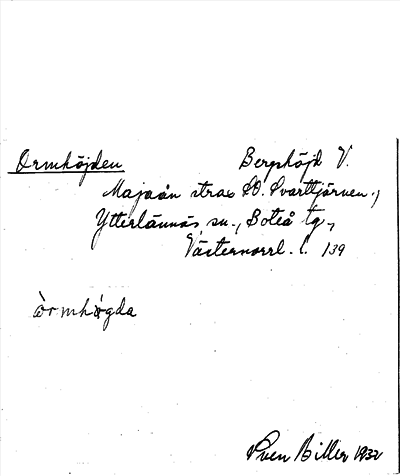 Ormhöjden Berghöjd V.
Majaån strax SO. Svarttjärnen.,
Ytterlännäs sn., Boteå tg.,
Västernorrl. l. 139
òrmhö̀gda
Sven Biller 1932